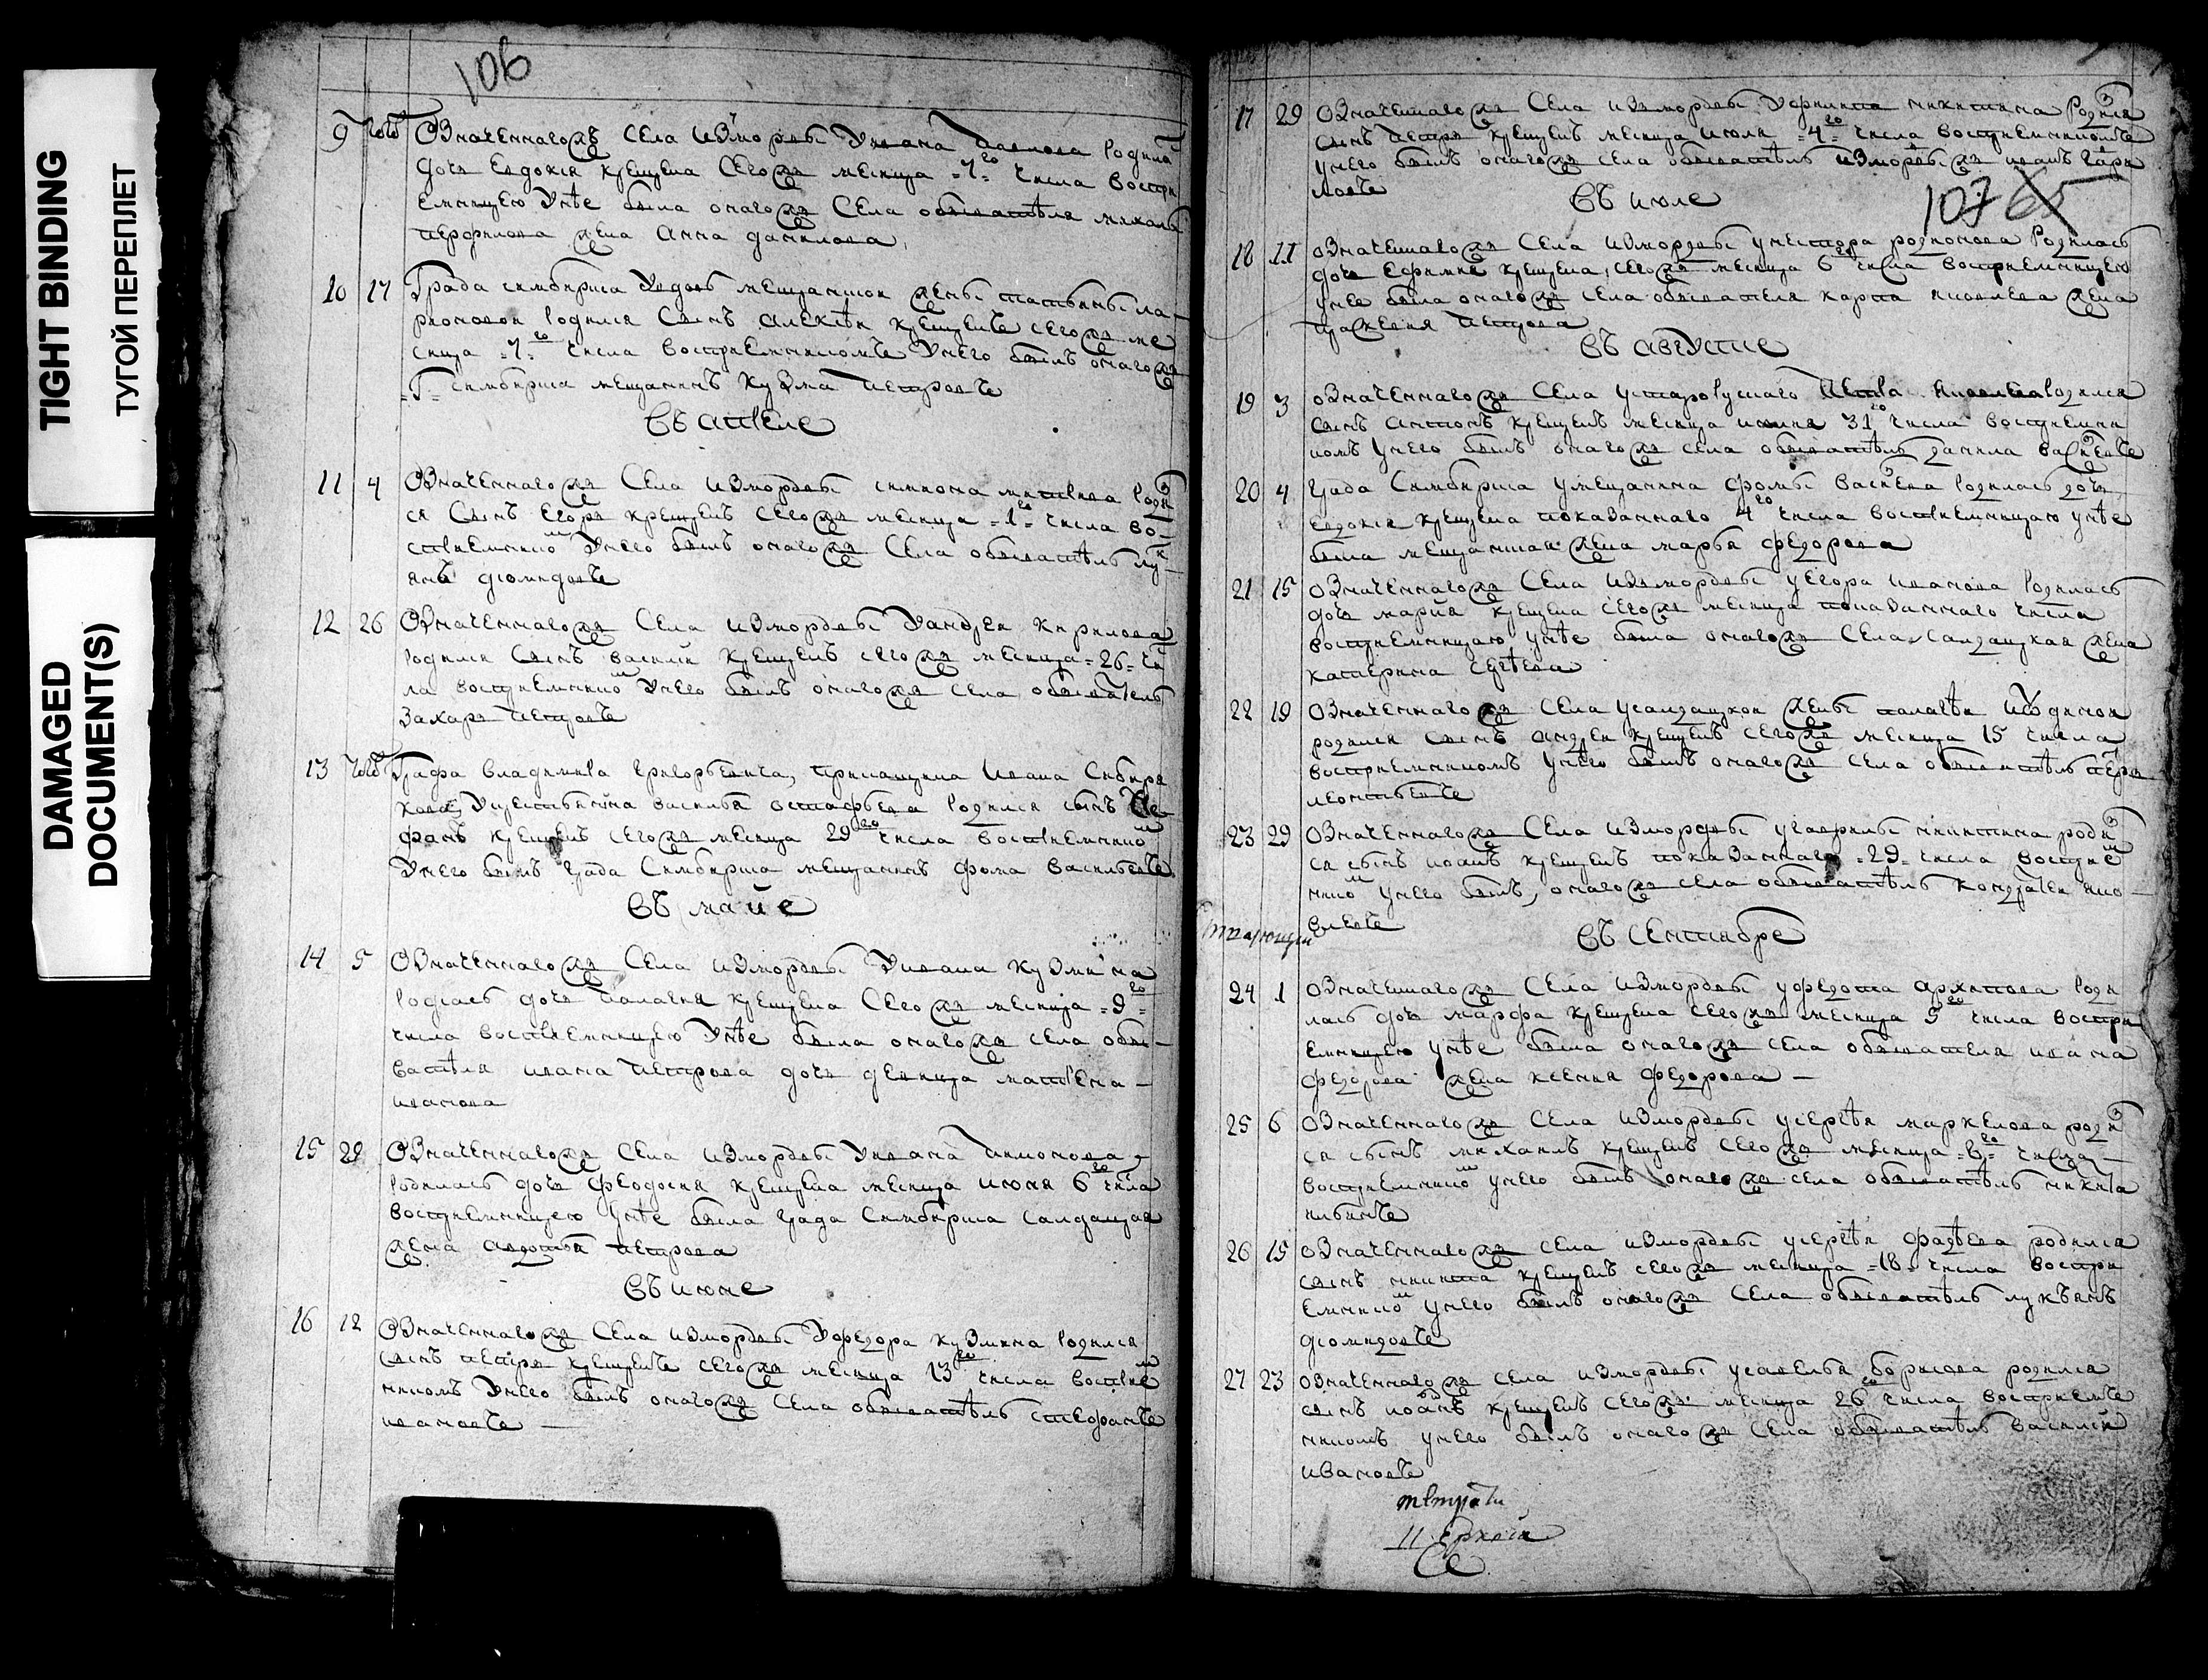 TIGHT BINDING
ТУГОЙ ПЕРЕПЛЕТ
DAMAGED
DOCUMENT(S)
106
9 Означеннаго же села изморды у Ивана родила
дочь Евдокия крещена сего же месяца 7го числа воспри
емницею у нее была онаго же села обывателя
жена Анна Данилова
10 17 Града синбирска у вдовы мещанской жены Татьяны ла
рионовой родился сынъ Алексѣй крещенъ сего же ме
сяца 7го числа восприемникомъ у него былъ онаго же
Г синбирска мещанинъ Кузма Петровъ
въ апреле
11 4 Означеннаго же села изморды роди
ся сынъ Егоръ крещенъ сего же месяца 1го числа во
сприемникомъ у него былъ онаго же села обыватель Лу
янъ
12 26 Означеннаго же села изморды у Андрея Кирилова
родился сынъ Василей крещенъ сего же месяца 26 чи
ла восприемникомъ у него былъ онаго же села обыватель
Захаръ Петровъ
13 Графа Владимира Григорьевича, Ивана
Василья Остафьева родился сынъ
крещенъ сего же месяца 29го числа восприемникомъ
у него былъ града Синбирска мещанинъ Фома Васильевъ
въ майе
14 5 Означеннаго же села изморды у Ивана Кузмина
родилась дочь Палагея крещена сего же месяца 9го
числа восприемницею у нее была онаго же села обы
вателя Ивана Петрова дочь девица Матрена
Иванова
15 29 Означеннаго же села изморды у Ивана
родилась дочь Феодосия крещена месяца июня 6го числа
восприемницею у нее была града Синбирска салдацкая
жена Авдотья Петрова
въ июне
16 12 Означеннаго же села изморды у Федора Кузмина родился
сынъ Петръ крещенъ сего же месяца 13го числа восприем
никомъ у него былъ онаго же села обыватель Стефанъ
Ивановъ
17 29 Означеннаго же села изморды у Никитина родился
сынъ Петръ крещенъ месяца июля 4го числа восприемникомъ
у него былъ онаго же села обыватель изморды же Иванъ Гари
ловъ
въ июле
107 65
18 11 Означеннаго же села изморды у Нестора Родионова родилась
дочь Ефимия крещена сего же месяца числа восприемницею
у нее была онаго же села обывателя Карпа Яковлева жена
Праскевия Петрова
въ августе
19 3 Означеннаго же села родился
сынъ Антонъ крещенъ месяца 31го числа восприемни
комъ у него былъ онаго же села обыватель Данила Васильевъ
20 4 Града Синбирска у мещанина Фомы Васильева родилась дочь
Евдокия крещена показаннаго 4го числа восприемницею у нее
была мещанская жена Марья Федорова
21 15 Означеннаго же села изморды у Егора Иванова родилась
дочь Мария крещена сего же месяца показаннаго числа
восприемницею у нее была онаго же села салдацкая жена
Катерина Сергѣева
22 19 Означеннаго же села у салдацкой жены Палагѣи
родился сынъ Андрей крещенъ сего же месяца 15 числа
восприемникомъ у него былъ онаго же села обыватель Петръ
Леонтьевъ
23 29 Означеннаго же села изморды у Гаврилы Никитина роди
ся сынъ Иоанъ крещенъ показаннаго 29 числа восприем
никомъ у него былъ онаго же села обыватель Кондратей Яко
влевъ
въ сентябре
24 1 Означеннаго же села изморды у Федота Архипова роди
лась дочь Марфа крещена сего же месяца 5го числа воспри
емницею у нее была онаго же села обывателя Ивана
Федорова жена Ксения Федорова
25 6 Означеннаго же села изморды у Сергѣя Маркелова роди
ся сынъ Михаилъ крещенъ сего же месяца 6го числа
восприемникомъ у него былъ онаго же села обыватель Никита
Ильинъ
26 15 Означеннаго же села изморды у Сергѣя Фадѣева родился
сынъ Никита крещенъ сего же месяца 18 числа воспри
емникомъ у него былъ онаго же села обыватель Лукьянъ
27 23 Означеннаго же села изморды у Савелья Борисова родился
сынъ Иоанъ крещенъ сего же месяца 26го числа восприем
никомъ у него былъ онаго же села обыватель Василей
Ивановъ